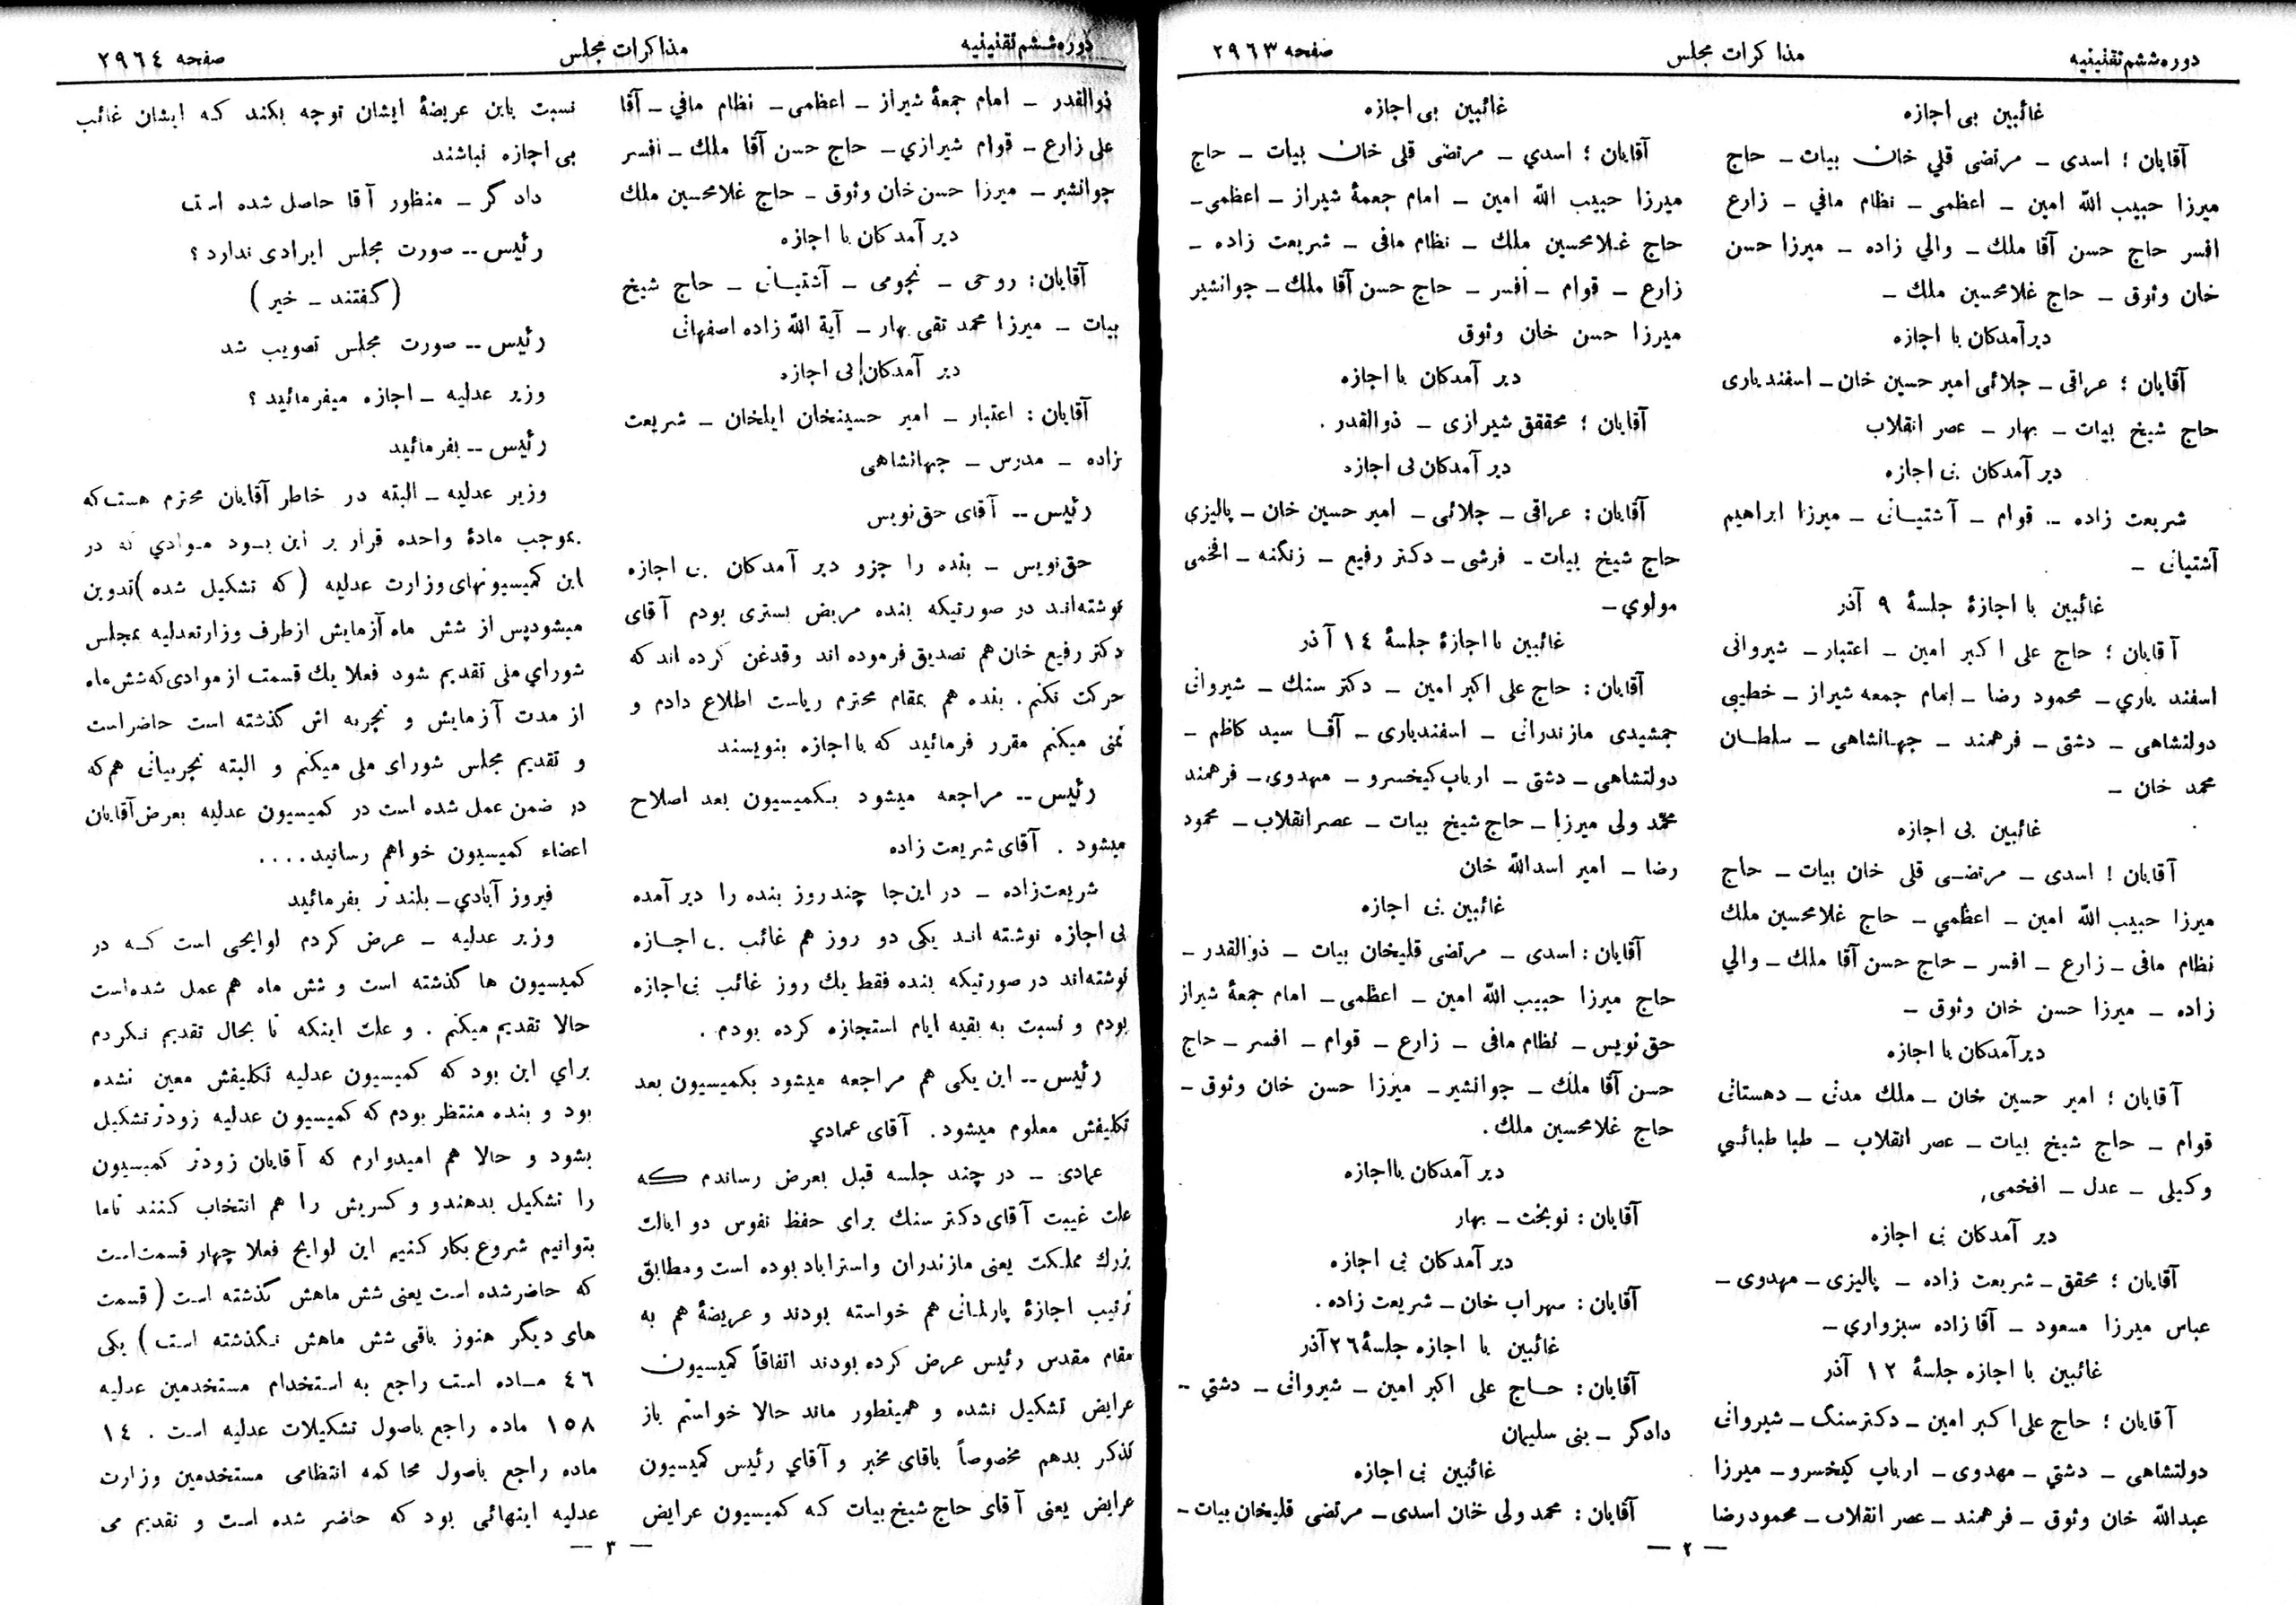 دوره ششم تقنینیه
مذاکرات مجلس
صفحه ۲۹۶۳
غائبین بی اجازه
آقایان ؛ اسدی ـ مرتضی قلی خان بیات ـ حاج
میرزا حبیب الله امین ـ اعظمی ـ نظام مافي ـ زارع
افسر حاج حسن آقا ملك ـ والي زاده ـ میرزا حسن
خان وثوق ـ حاج غلامحسین ملك ـ
دیرآمدکان با اجازه
آقایان ؛ عراقی ـ جلائی امیر حسین خان ـ اسفندیاری
حاج شیخ بیات ـ بهار ـ عصر انقلاب
دیر آمدکان بی اجازه
شریعت زاده ـ قوام ـ آشتیانی ـ میرزا ابراهیم
آشتیانی ـ
غائبین با اجازهٔ جلسهٔ ۹ آذر
آقایان ؛ حاج علی اکبر امین ـ اعتبار ـ شیروانی
اسفند یاري ـ محمود رضا ـ امام جمعه شیراز ـ خطیبی
دولتشاهی ـ دشتی ـ فرهمند ـ جهانشاهی ـ سلطان
محمد خان ـ
غائبین بی اجازه
آقایان ! اسدی ـ مرتضی قلی خان بیات ـ حاج
میرزا حبیب الله امین ـ اعظمي ـ حاج غلامحسین ملك
نظام مافی ـ زارع ـ افسر ـ حاج حسن آقا ملك ـ والي
زاده ـ میرزا حسن خان وثوق ـ
دیرآمدکان با اجازه
آقایان ؛ امیر حسین خان ـ ملك مدنی ـ دهستانی
قوام ـ حاج شیخ بیات ـ عصر انقلاب ـ طبا طبائی
وکیلی ـ عدل ـ افخمی,
دیر آمدکان بی اجازه
آقایان ؛ محقق ـ شریعت زاده ـ پالیزی ـ مهدوی ـ
عباس میرزا مسعود ـ آقا زاده سبزواري ـ
غائبین با اجازه جلسهٔ ۱۲ آذر
آقایان ؛ حاج علی اکبر امین ـ دکتر سنگ ـ شیروانی
دولتشاهی ـ دشتي ـ مهدوی ـ ارباب کیخسرو ـ میرزا
عبدالله خان وثوق ـ فرهمند ـ عصر انقلاب ـ محمود رضا
غائبین بی اجازه
آقایان ؛ اسدي ـ مرتضی قلی خان بیات ـ حاج
میرزا حبیب الله امین ـ امام جمعهٔ شیراز ـ اعظمی ـ
حاج غلامحسین ملك ـ نظام مافی ـ شریعت زاده ـ
زارع ـ قوام ـ افسر ـ حاج حسن آقا ملك ـ جوانشیر
میرزا حسن خان وثوق
دیر آمدکان با اجازه
آقایان ؛ محققق شیرازی ـ ذوالقدر .
دیر آمدکان بی اجازه
آقایان : عراقی ـ جلائی ـ امیر حسین خان ـ پالیزی
حاج شیخ بیات ـ فرشی ـ دکتر رفیع ـ زنگنه ـ افخمی
مولوي ـ
غائبین با اجازهٔ جلسهٔ ۱٤ آذر
آقایان : حاج علی اکبر امین ـ دکتر سنك ـ شیروانی
جمشیدی مازندرانی ـ اسفندیاری ـ آقا سید کاظم ـ
دولتشاهی ـ دشتی ـ ارباب کیخسرو ـ مهدوی ـ فرهمند
محمد ولی میرزا ـ حاج شیخ بیات ـ عصر انقلاب ـ محمود
رضا ـ امیر اسدالله خان
غائبین بی اجازه
آقایان : اسدی ـ مرتضی قلیخان بیات ـ ذوالقدر ـ
حاج میرزا حبیب الله امین ـ اعظمی ـ امام جمعهٔ شیراز
حق نویس ـ نظام مافی ـ زارع ـ قوام ـ افسر ـ حاج
حسن آقا ملك ـ جوانشیر ـ میرزا حسن خان وثوق ـ
حاج غلامحسین ملك .
دیر آمدکان بااجازه
آقایان : نوبخت ـ بهار
دیر آمدکان بی اجازه
آقایان : سهراب خان ـ شریعت زاده .
غائبین با اجازه جلسهٔ ۲٦ آذر
آقایان : حاج علی اکبر امین ـ شیروانی ـ دشتي ـ
دادکر ـ بنی سلیمان
غائبین بی اجازه
آقایان : محمد ولی خان اسدی ـ مرتضی قلیخان بیات ـ
— ۲ —
دوره ششم تقنینیه
مذاکرات مجلس
صفحه ۲۹٦٤
ذوالقدر ـ امام جمعهٔ شیراز ـ اعظمی ـ نظام مافي ـ آقا
علی زارع ـ قوام شیرازي ـ حاج حسن آقا ملك ـ افسر
جوانشیر ـ میرزا حسن خان وثوق ـ حاج غلامحسین ملك
دیر آمدکان با اجازه
آقایان : روحی ـ نجومی ـ آشتیانی ـ حاج شیخ
بیات ـ میرزا محمد تقی بهار ـ آیة الله زاده اصفهانی
دیر آمدکان بی اجازه
آقایان : اعتبار ـ امیر حسینخان ایلخان ـ شریعت
زاده ـ مدرس ـ جهانشاهی
رئیس ـ آقای حق نویس
حق نویس ـ بنده را جزو دیر آمدکان بی اجازه
نوشته اند در صورتیکه بنده مریض بستری بودم آقای
دکتر رفیع خان هم تصدیق فرموده اند و قدغن کرده اند که
حرکت نکنم . بنده هم بمقام محترم ریاست اطلاع دادم و
تمنی میکنم مقرر فرمائید که با اجازه بنویسند
رئیس ـ مراجعه میشود بکمیسیون بعد اصلاح
میشود . آقای شریعت زاده
شریعت زاده ـ در این جا چند روز بنده را دیر آمده
بی اجازه نوشته اند یکی دو روز هم غائب بی اجازه
نوشته اند در صورتیکه بنده فقط یك روز غائب بی اجازه
بودم و نسبت به بقیه ایام استجازه کرده بودم .
رئیس ـ این یکی هم مراجعه میشود بکمیسیون بعد
تکلیفش معلوم میشود . آقای عمادي
عمادی ـ در چند جلسه قبل بعرض رساندم که
علت غیبت آقای دکتر سنك برای حفظ نفوس دو ایالت
بزرك مملکت یعنی مازندران و استراباد بوده است و مطابق
ترتیب اجازهٔ پارلمانی هم خواسته بودند و عریضهٔ هم به
مقام مقدس رئیس عرض کرده بودند اتفاقاً کمیسیون
عرایض تشکیل نشده و همینطور ماند حالا خواستم باز
تذکر بدهم مخصوصاً باقای مخبر و آقاي رئیس کمیسیون
عرایض یعنی آقای حاج شیخ بیات که کمیسیون عرایض
نسبت باین عریضهٔ ایشان توجه بکند که ایشان غائب
بی اجازه نباشند
دادکر ـ منظور آقا حاصل شده است
رئیس ـ صورت مجلس ایرادی ندارد ؟
(کفتند ـ خیر)
رئیس ـ صورت مجلس تصویب شد
وزیر عدلیه ـ اجازه میفرمائید ؟
رئیس ـ بفرمائید
وزیر عدلیه ـ البته در خاطر آقایان محترم هست که
بموجب مادهٔ واحده قرار بر این بود موادي که در
این کمیسیونهای وزارت عدلیه (که تشکیل شده) تدوین
میشود پس از شش ماه آزمایش ازطرف وزارتعدلیه بمجلس
شورای ملی تقدیم شود فعلا یك قسمت از موادی که شش ماه
از مدت آزمایش و تجربه اش کذشته است حاضراست
و تقدیم مجلس شورای ملی میکنم و البته تجربیاتی هم که
در ضمن عمل شده است در کمیسیون عدلیه بعرض آقایان
اعضاء کمیسیون خواهم رسانید....
فیروز آبادي ـ بلندتر بفرمائید
وزیر عدلیه ـ عرض کردم لوایحی است که در
کمیسیون ها کذشته است و شش ماه هم عمل شده است
حالا تقدیم میکنم . و علت اینکه تا بحال تقدیم نکردم
براي این بود که کمیسیون عدلیه تکلیفش معین نشده
بود و بنده منتظر بودم که کمیسیون عدلیه زودتر تشکیل
بشود و حالا هم امیدوارم که آقایان زودتر کمیسیون
را تشکیل بدهند و کسریش را هم انتخاب کنند تاما
بتوانیم شروع بکار کنیم این لوایح فعلا چهار قسمت است
که حاضر شده است یعنی شش ماهش کذشته است (قسمت
های دیگر هنوز باقی شش ماهش نگذشته است) یکی
٤٦ ماده است راجع به استخدام مستخدمین عدلیه
۱٥۸ ماده راجع باصول تشکیلات عدلیه است . ۱٤
ماده راجع باصول محاکمه انتظامی مستخدمین وزارت
عدلیه اینهائی بود که حاضر شده است و تقدیم می
— ۳ —